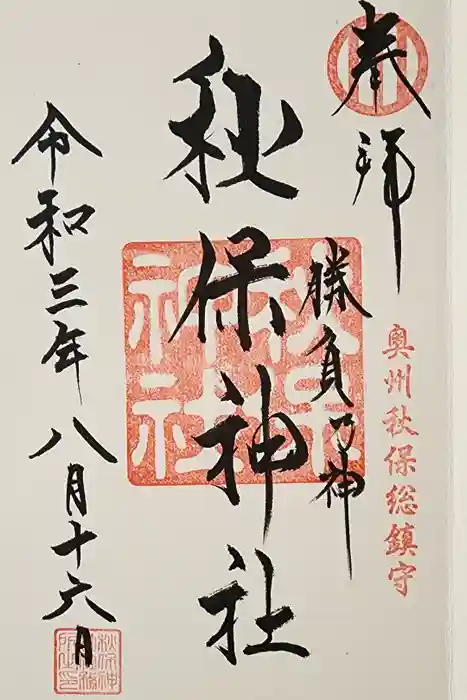 奉拝
奥州秋保総鎮守
勝負乃神
秋保神社
秋保神社
令和三年八月十六日